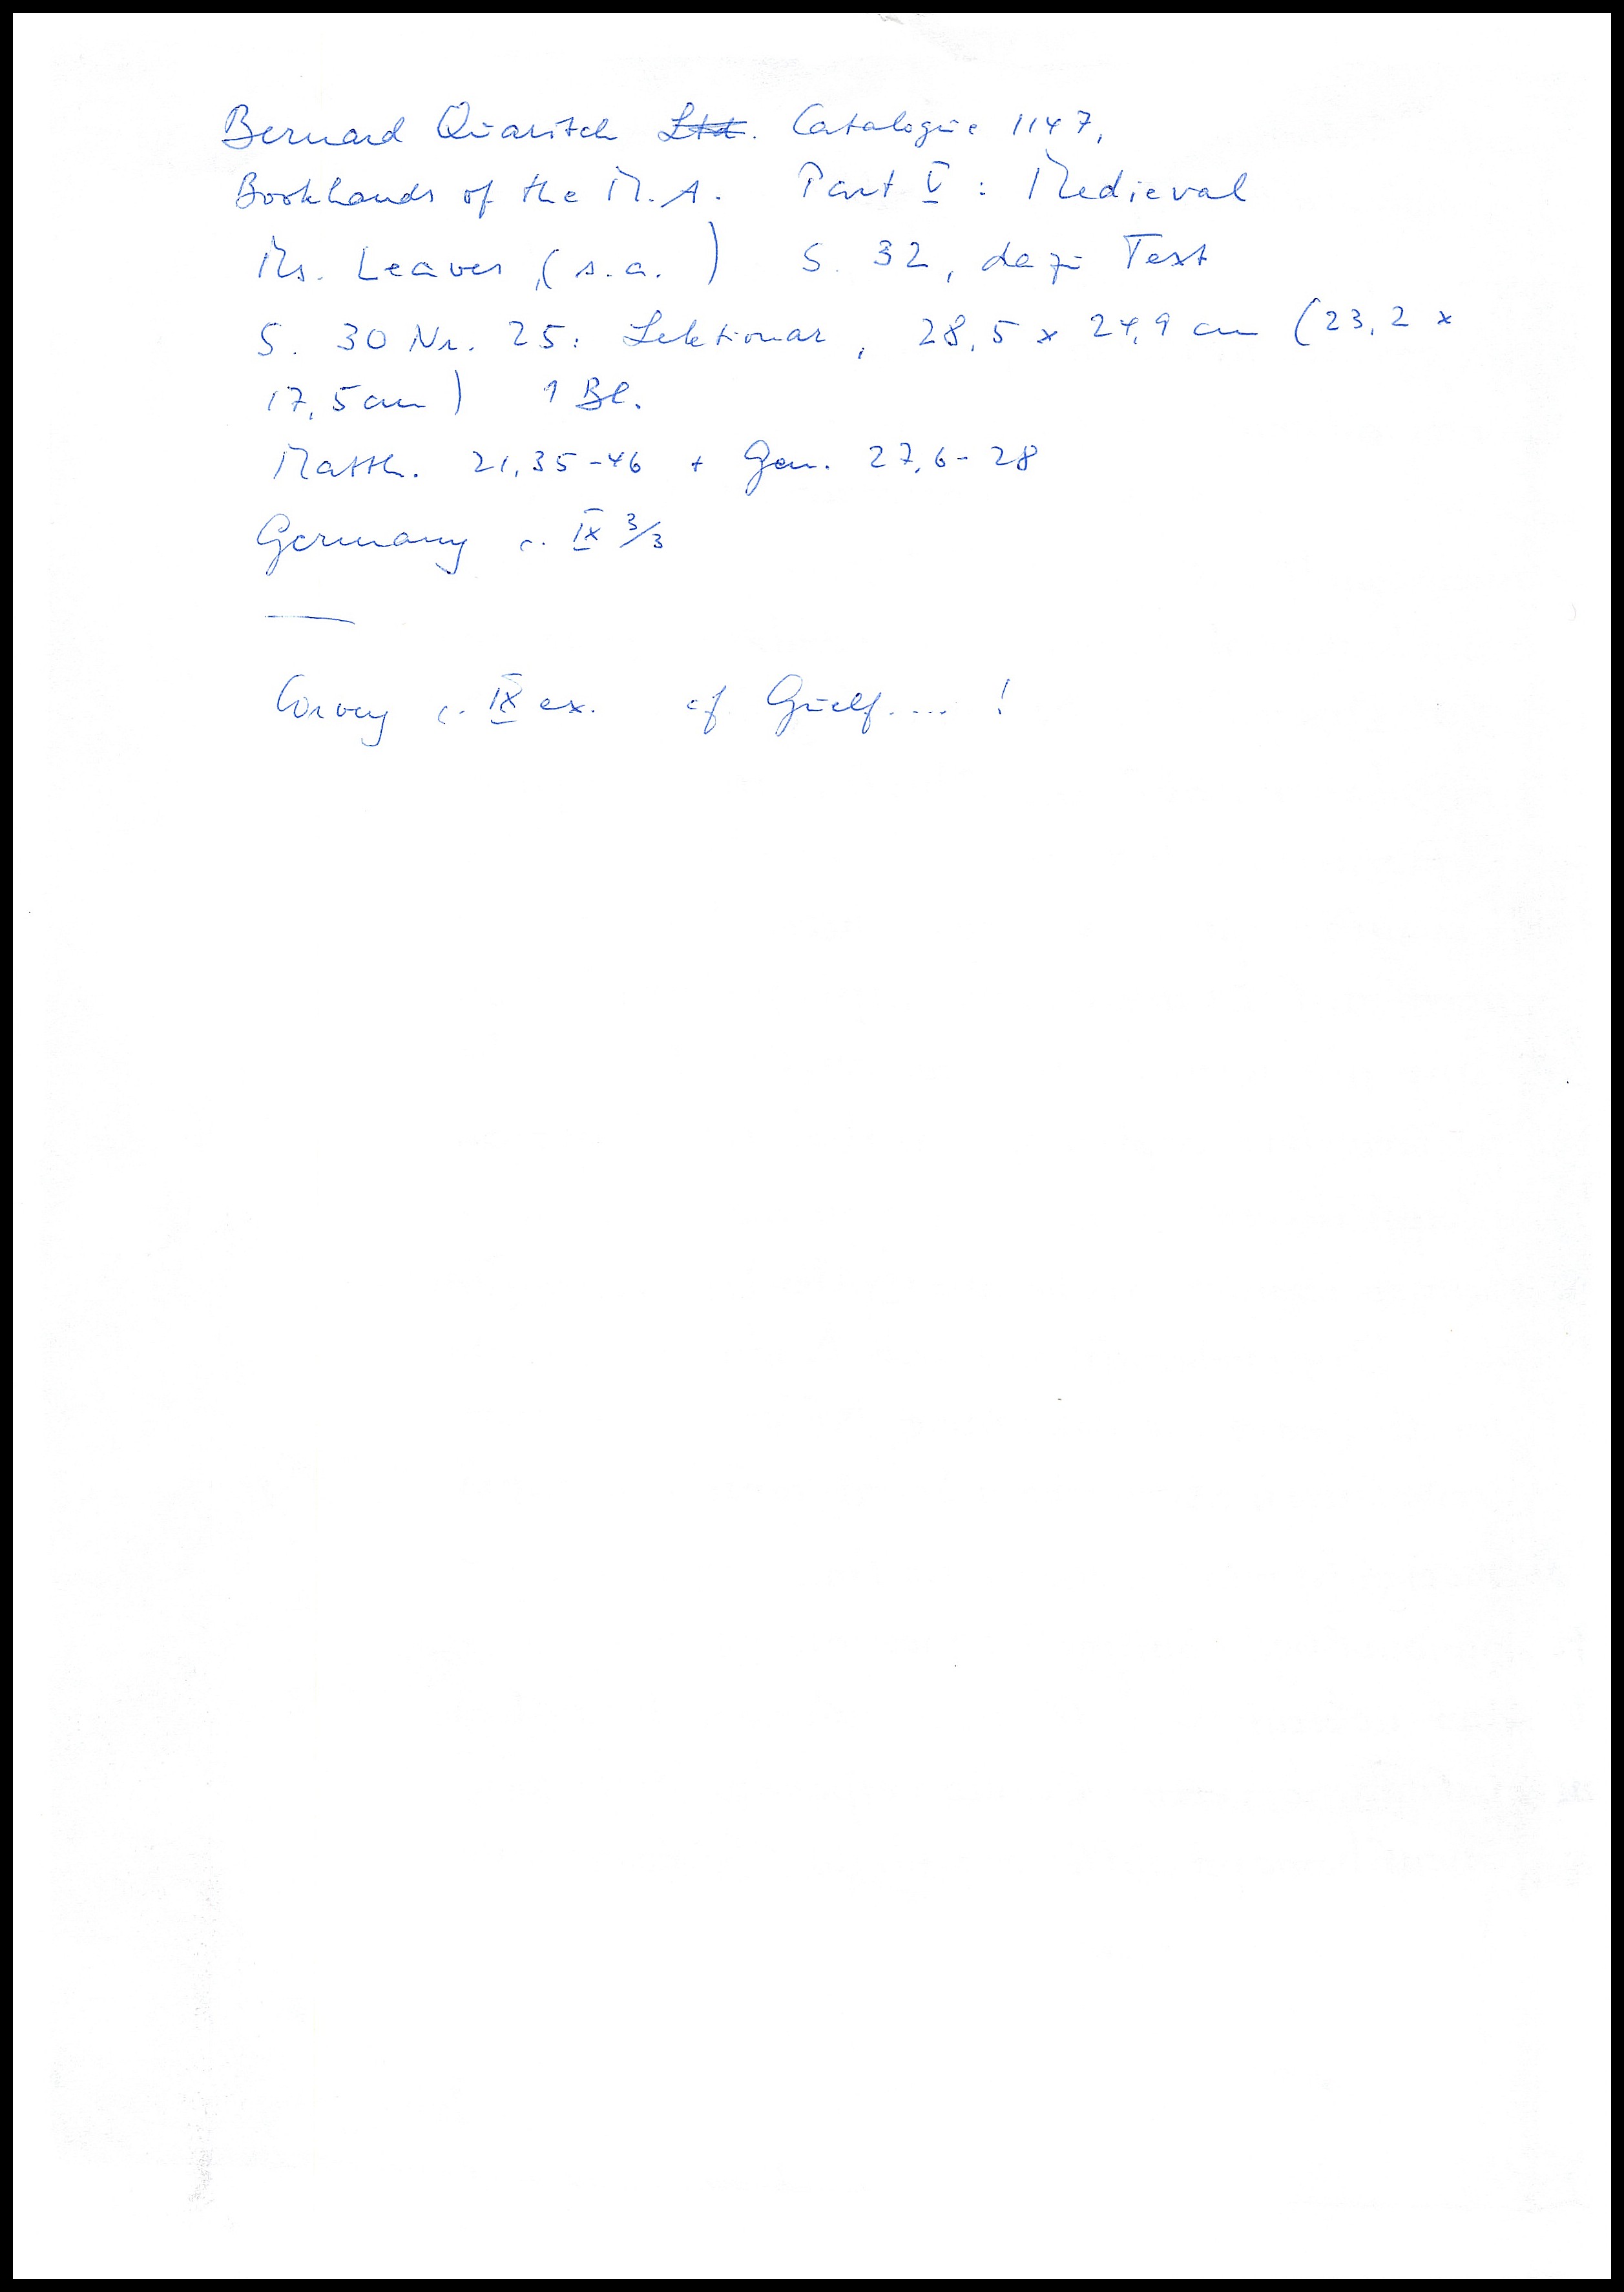 Bernard Quaritch Ltd. Catalogue 1147,
Bookhands of the M.A. Part V : Medieval
Ms. Leaves, (s.a. ) S. 32, dazu Text
S. 30 Nr. 25: Lektionar, 28,5 x 24,9 cm (23,2 x
17,5 cm) 1 Bl.
Matth. 21,35-46 + Gen. 27,6-28
Germany c. IX 3/3
Corvey c. IX ex. cf Guelf. ... !